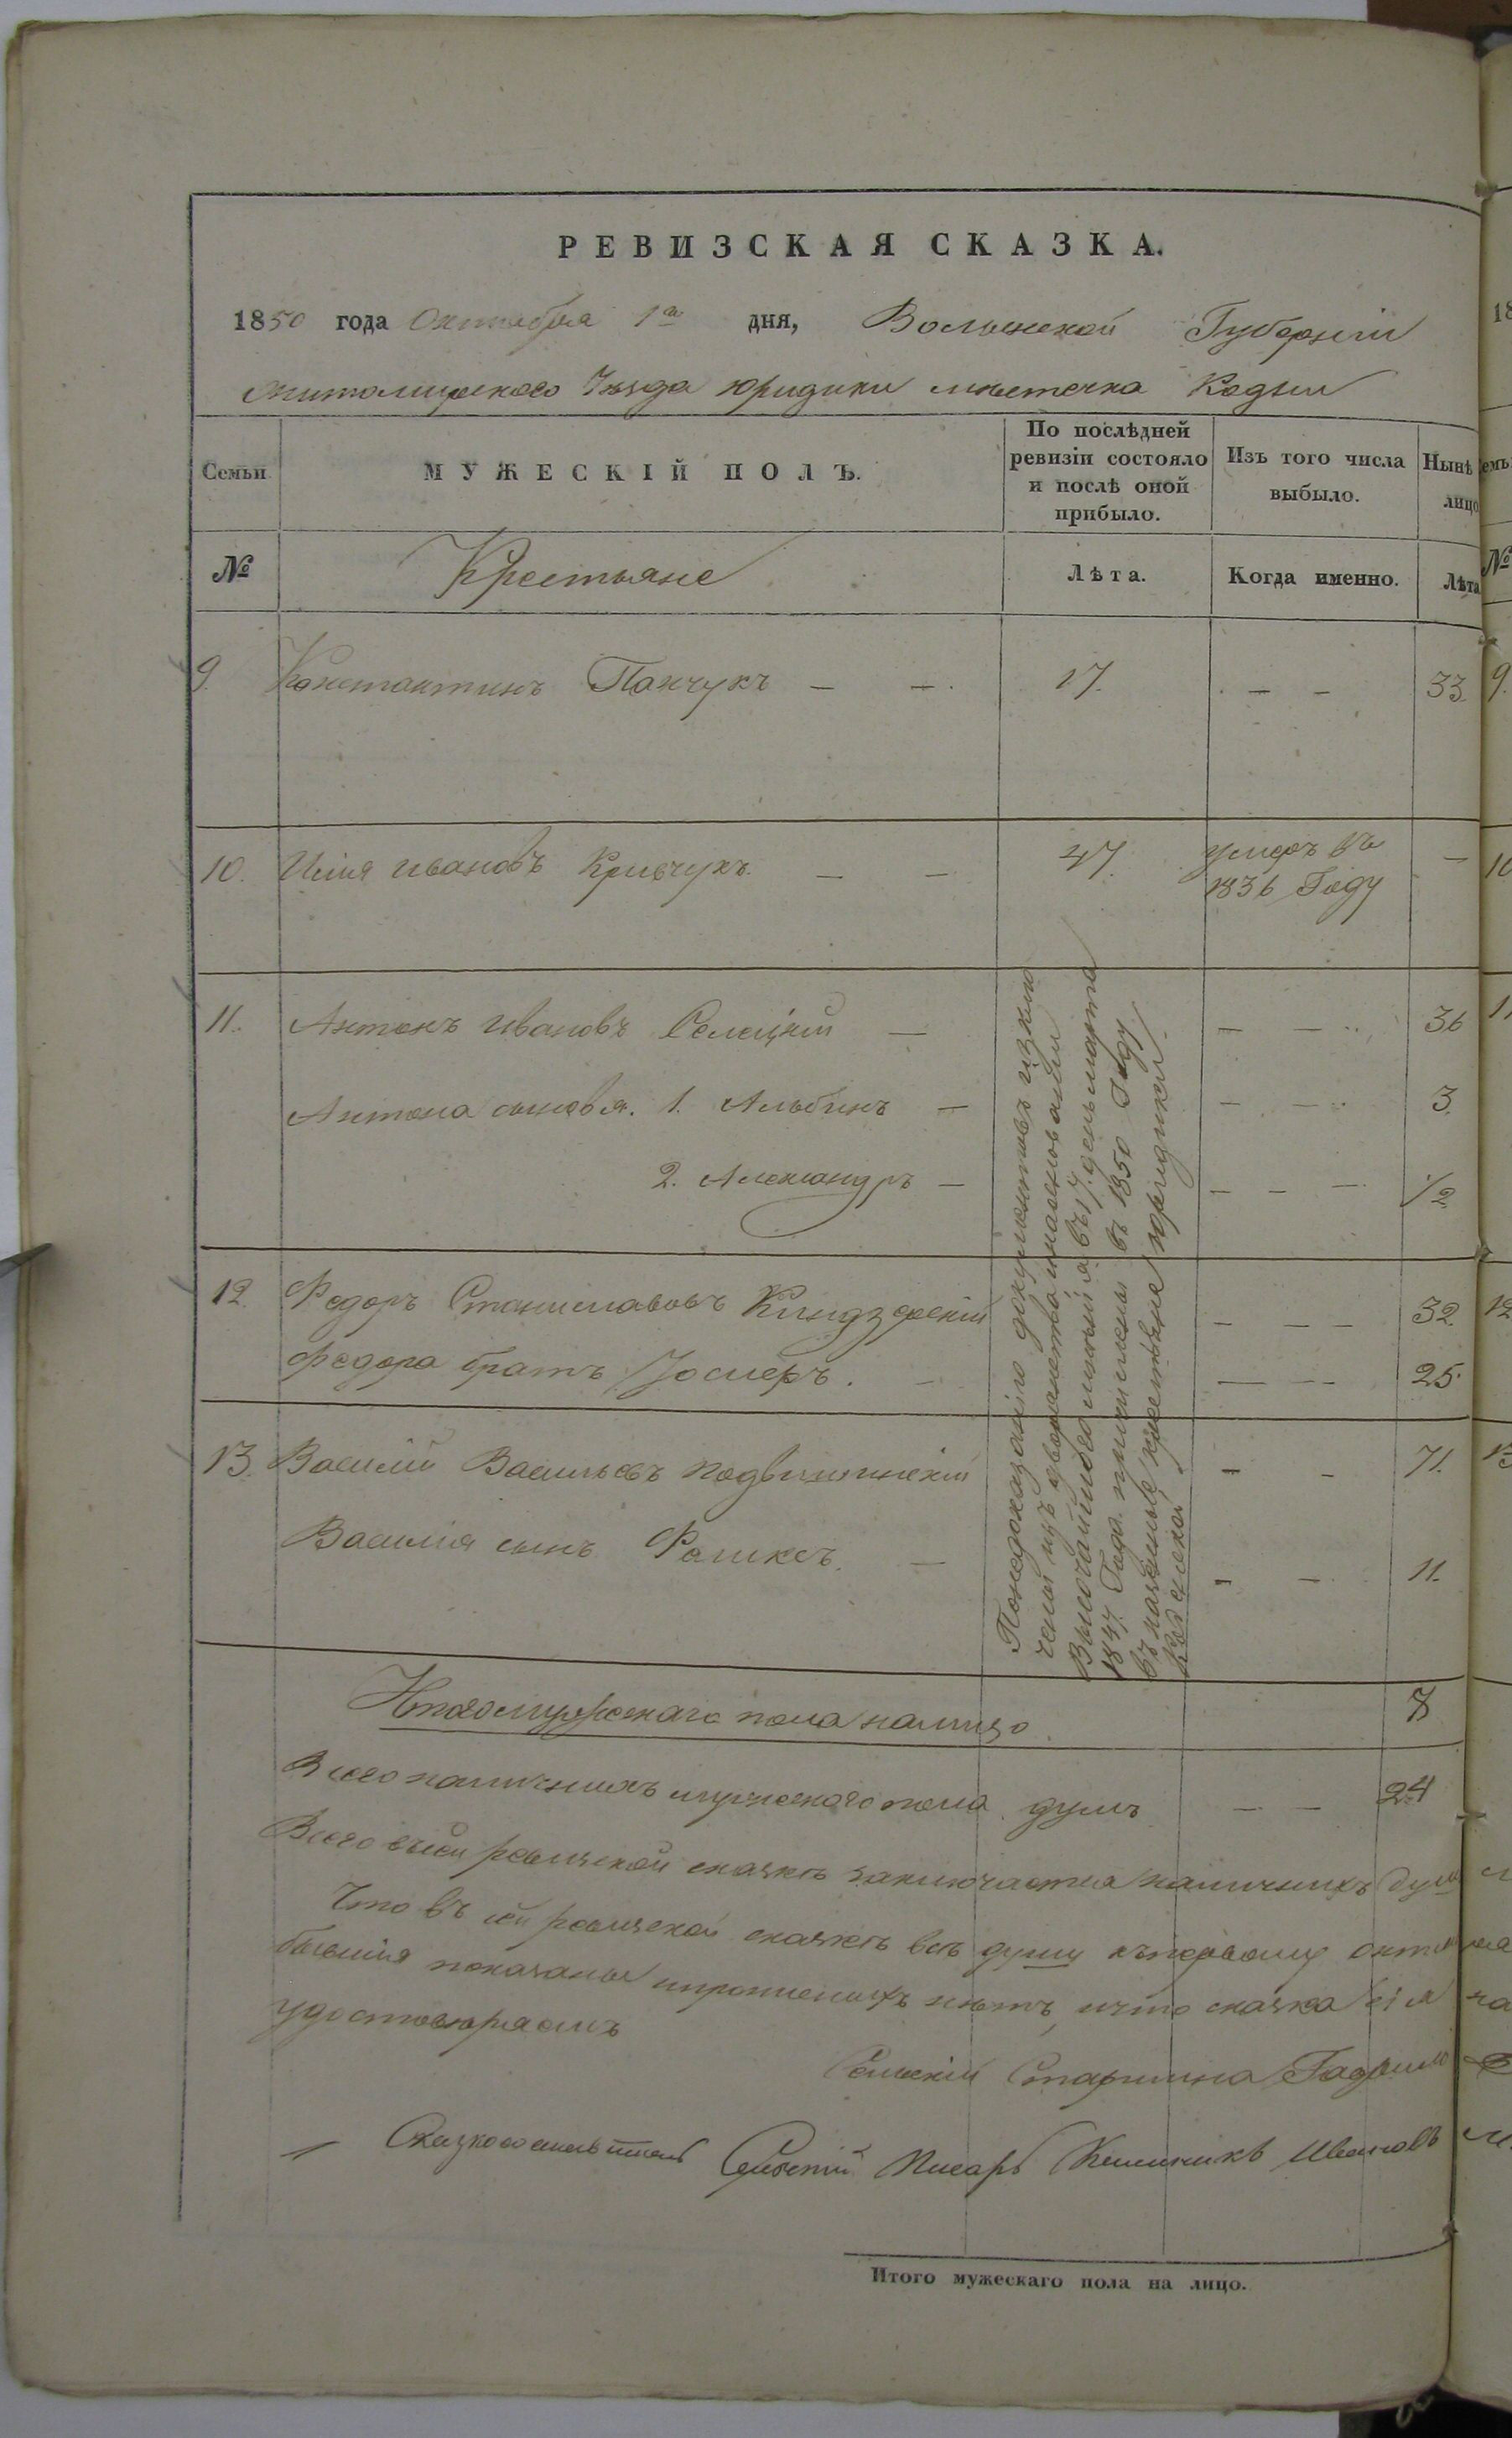 РЕВИЗСКАЯ СКАЗКА.
1850 года Октября 1го дня, Волынской Губерніи
Житомирского Уезда юридики местечка Кодни
Семьи
МУЖЕСКІЙ ПОЛЪ.
По послѣдней ревизіи состояло и послѣ оной прибыло.
Изъ того числа выбыло.
Нынѣ лицо
№ Крестьяне Лѣта. Когда именно. Лѣта
9. Константинъ Панчукъ — —. 17. — — 33.
10. Илія Ивановъ Кривчукъ. — — 47. умеръ въ —
1836 Году
11. Антонъ Ивановъ Селецкій — — — 36
Антона сыновья. 1. Альбинъ — — — 3.
2. Александръ — — — — 1/2
12. Федоръ Станиславовъ Киндзерскій — — — 32.
Федора братъ Іосифъ. — — — 25.
13. Василій Васильевъ Подвишинскій - - 71.
Василія сынъ Феликсъ. — - - 11.
По недоказанію документовъ исклю
чены изъ дворянства и на основаніи
Высочайшого въ 17. день марта
1847. Года причислены въ 1850 Году
въ казенные крестьяне юридики
Итого мужескаго пола налицо 7
Всего наличныхъ мужеского пола душъ — — 24
Всего въ сей ревизской сказкѣ заключается наличныхъ душ
Что въ сей ревизской сказкѣ всѣ души къ первому октя
бывшія показаны и прописныхъ нѣтъ, и что сказка сія
удостоверяемъ
Сельскій Старшина
Сказкосоставитель Сельскій Писарь Ивановъ
Итого мужескаго пола на лицо.